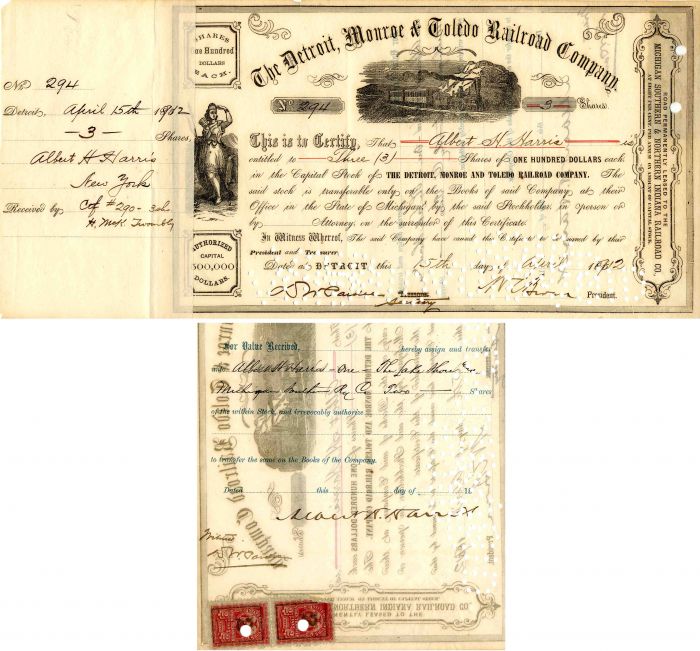 No 294
Detroit, April 15th 1912
—3— Shares,
Albert H Harris
New York
Received by Ctf #290-3 shs
H. McK. Twombly
SHARES
One Hundred
DOLLARS
EACH.
AUTHORIZED
CAPITAL
500,000
DOLLARS.
The Detroit, Monroe & Toledo Railroad Company
No 294
—3— Shares.
This is to Certify, That Albert H Harris is
entitled to Three (3) Shares of ONE HUNDRED DOLLARS each
in the Capital Stock of THE DETROIT, MONROE AND TOLEDO RAILROAD COMPANY. The
said stock is transferable only on the Books of said Company at their
Office in the State of Michigan, by the said Stockholder, in person or
by Attorney on the surrender of this Certificate.
In Witness Whereof, The said Company have caused this Certificate to be signed by their
President and Treasurer.
Dated at DETROIT this 15th day of April 1912
Secretary
President.
ROAD PERMANENTLY LEASED TO THE
MICHIGAN SOUTHERN & NORTHERN INDIANA RAILROAD CO.
For Value Received, hereby assign and transfer
unto Albert H Harris - One - The Lake Shore &
Michigan Southern Ry Co Two — Shares
of the within Stock, and irrevocably authorize
to transfer the same on the Books of the Company.
Dated this day of 18
Albert H. Harris
Witness